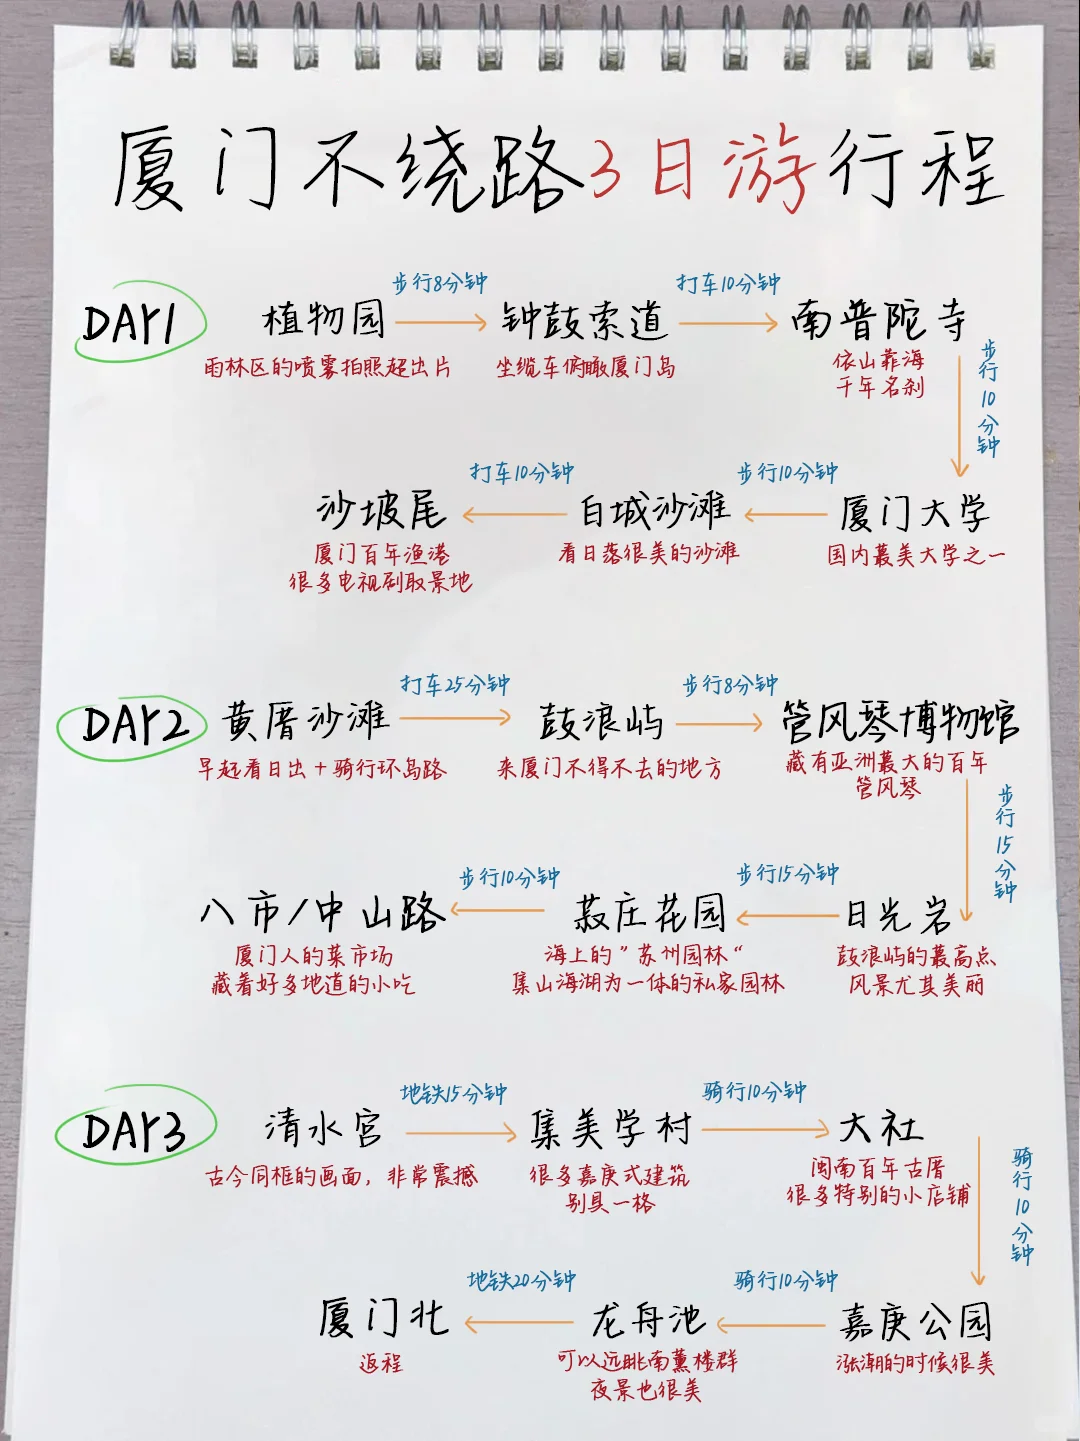 厦门不绕路3日游行程
步行8分钟 打车10分钟
DAY1 植物园 钟鼓索道 南普陀寺
雨林区的喷雾拍照超出片 坐缆车俯瞰厦门岛 依山靠海
千年名刹
步行10分钟
打车10分钟 步行10分钟
沙坡尾 白城沙滩 厦门大学
厦门百年渔港 看日落很美的沙滩 国内最美大学之一
很多电视剧取景地
打车25分钟 步行8分钟
DAY2 黄厝沙滩 鼓浪屿 管风琴博物馆
早起看日出+骑行环岛路 来厦门不得不去的地方 藏有亚洲最大的百年
管风琴
步行15分钟
步行10分钟 步行15分钟
八市/中山路 菽庄花园 日光岩
厦门人的菜市场 海上的"苏州园林" 鼓浪屿的最高点
藏着好多地道的小吃 集山海湖为一体的私家园林 风景尤其美丽
地铁15分钟 骑行10分钟
DAY3 清水宫 集美学村 大社
古今同框的画面,非常震撼 很多嘉庚式建筑 闽南百年古厝
别具一格 很多特别的小店铺
骑行10分钟
地铁20分钟 骑行10分钟
厦门北 龙舟池 嘉庚公园
返程 可以远眺南薰楼群 涨潮的时候很美
夜景也很美